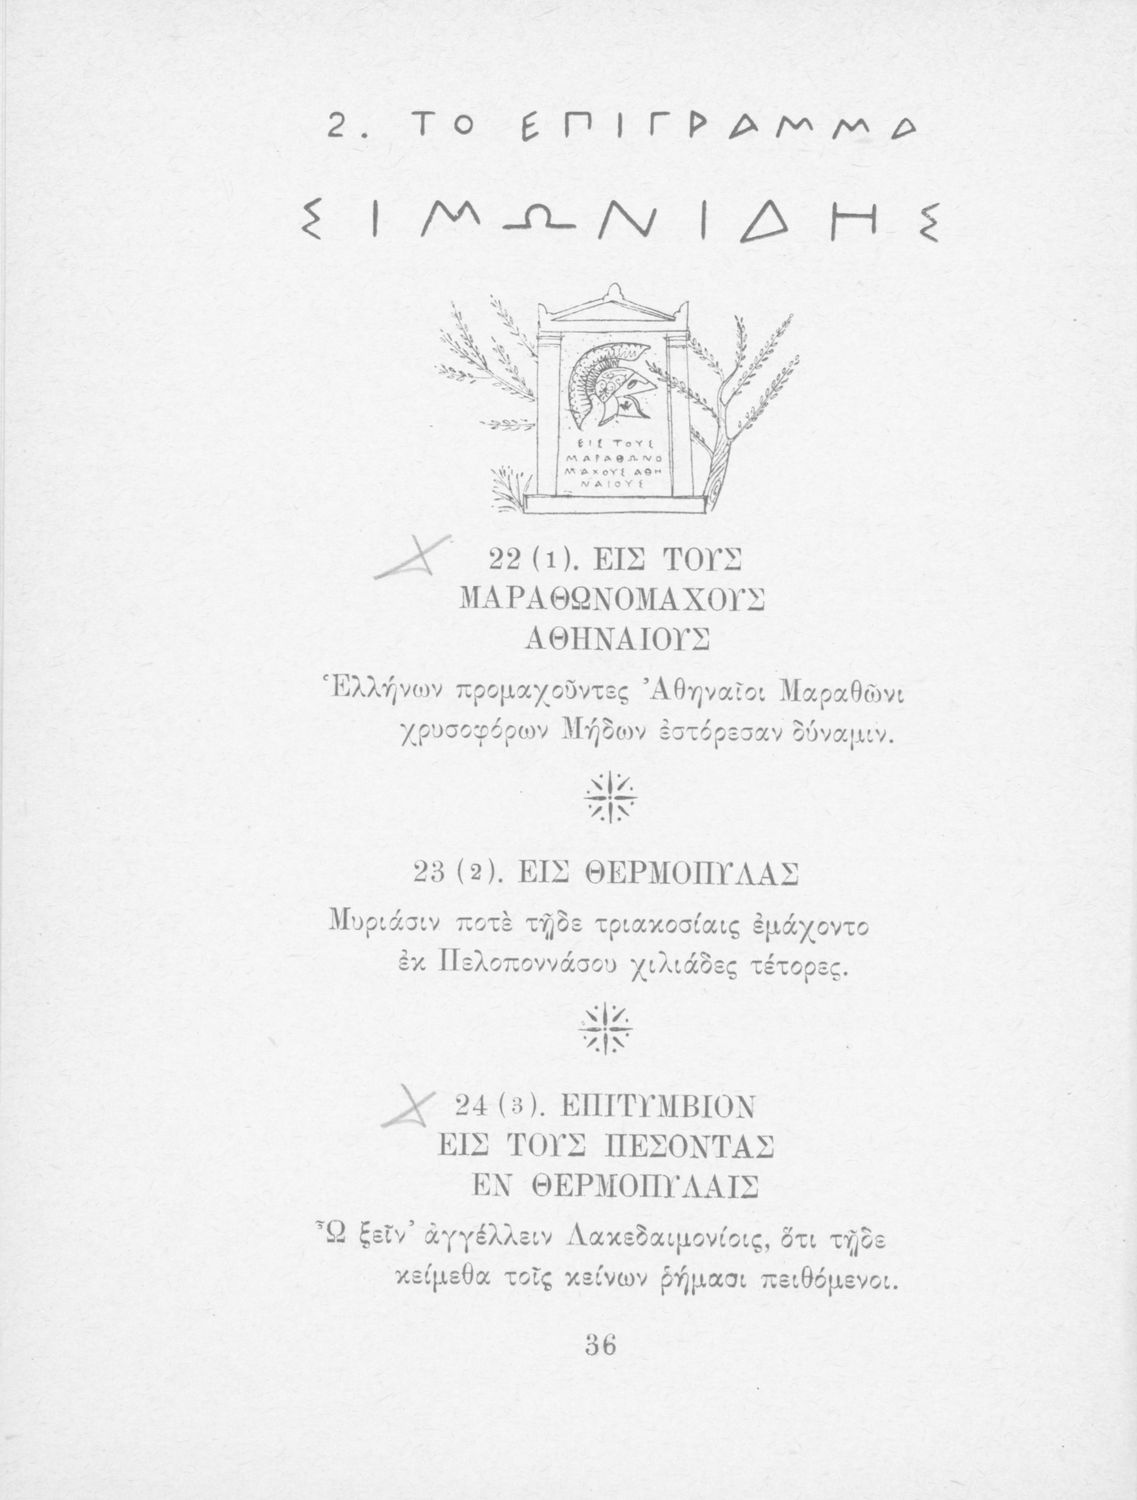 2. ΤΟ ΕΠΙΓΡΑΜΜΑ
ΣΙΜΩΝΙΔΗΣ
ΕΙΣ ΤΟΥΣ
ΜΑΡΑΘΩΝΟ
ΜΑΧΟΥΣ ΑΘΗ
ΝΑΙΟΥΣ
22 (1). ΕΙΣ ΤΟΥΣ
ΜΑΡΑΘΩΝΟΜΑΧΟΥΣ
ΑΘΗΝΑΙΟΥΣ
Ἑλλήνων προμαχοῦντες Ἀθηναῖοι Μαραθῶνι
χρυσοφόρων Μήδων ἐστόρεσαν δύναμιν.
23 (2). ΕΙΣ ΘΕΡΜΟΠΥΛΑΣ
Μυριάσιν ποτὲ τῇδε τριακοσίαις ἐμάχοντο
ἐκ Πελοποννάσου χιλιάδες τέτορες.
24 (3). ΕΠΙΤΥΜΒΙΟΝ
ΕΙΣ ΤΟΥΣ ΠΕΣΟΝΤΑΣ
ΕΝ ΘΕΡΜΟΠΥΛΑΙΣ
Ὦ ξεῖν’ ἀγγέλλειν Λακεδαιμονίοις, ὅτι τῇδε
κείμεθα τοῖς κείνων ῥήμασι πειθόμενοι.
36